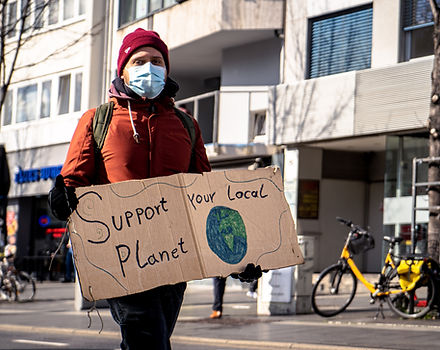 Support Your Local
Planet